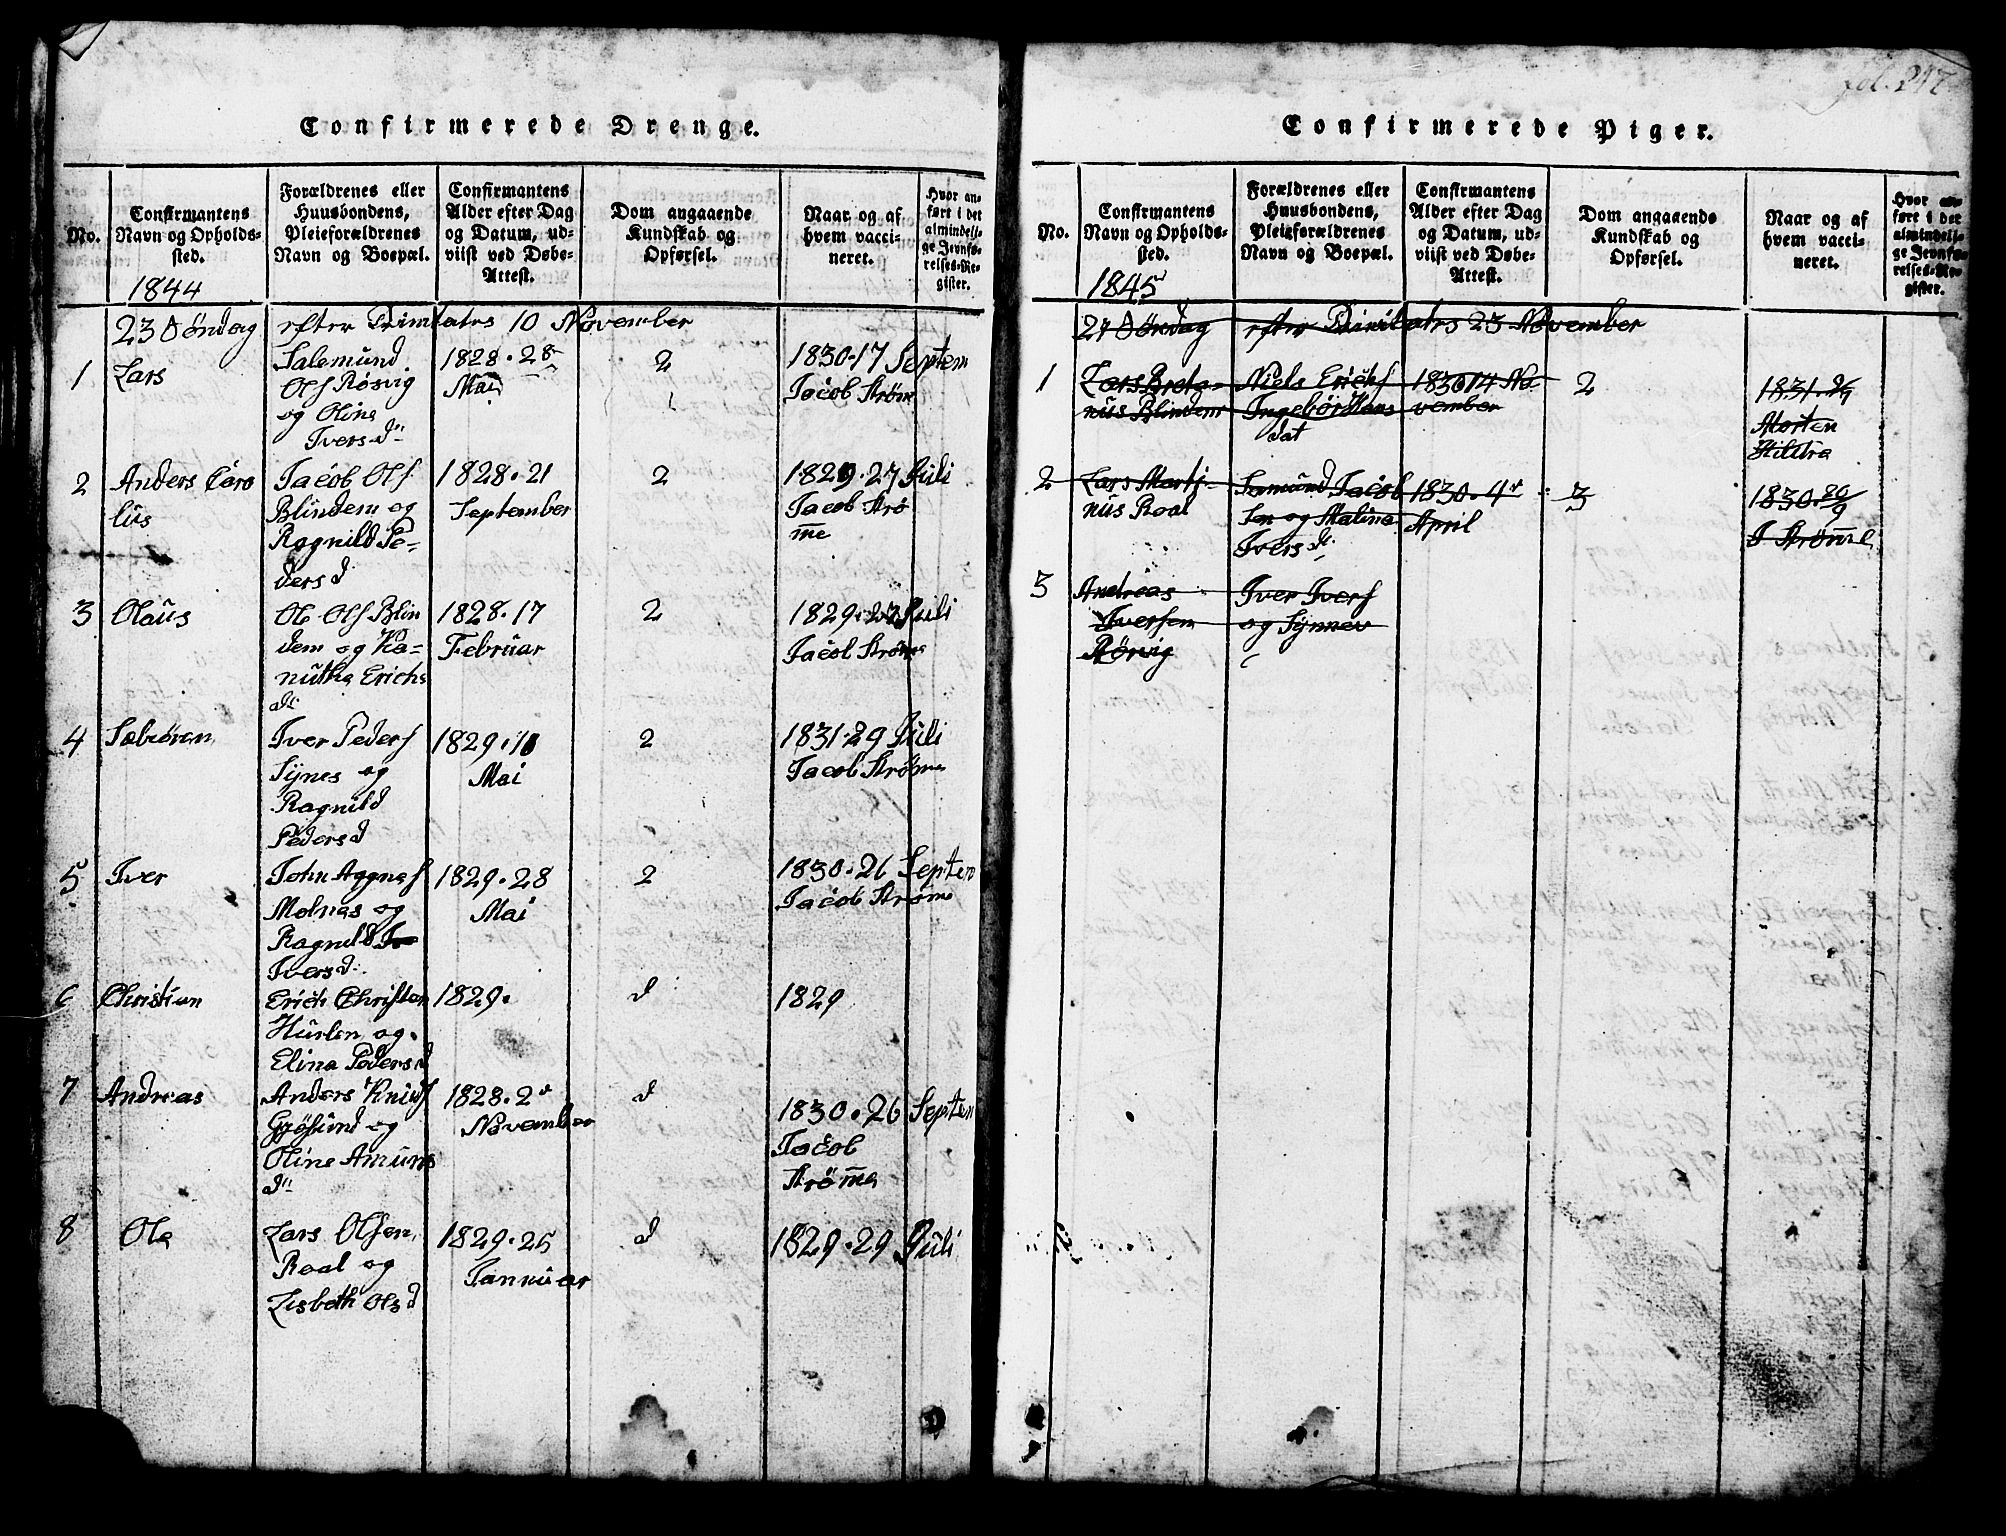 fol. 247
Confirmerede Drenge.
No.
Confirmantens
Navn og Opholds-
sted.
1844
Forældrenes eller
Huusbondens,
Pleieforældrenes
Navn og Boepæl.
Confirmantens
Alder efter Dag
og Datum, ud-
viist ved Døbe-
Attest.
Dom angaaende
Kundskab og
Opførsel.
Naar og af
hvem vacci-
neret.
Hvor an-
ført i det
almindeli-
ge Jevnfø-
relses-Re-
gister.
23 Søndag efter Trinitatis 10 November
1
Lars
Salemund
Ols Røsvig
og Olina
Ivers d:
1828. 28
Mai
2
1830. 17 Septem
Jacob Strøm
2
Anders Caro
lus
Jacob Ols
Blindem og
Ragnild Pe-
ders d
1828. 21
September
2
1829. 27 Juli
Jacob Strø
me
3
Olaus
Ole Ols Blin
dem og Ka-
nutha Erichs
d:
1828. 17
Februar
2
1829. 27 Juli
Jacob Strøme
4
Iver Peders
Synes og
Ragnild
Peders d
1829. 10
Mai
2
1831. 29 Juli
Jacob Strøme
5
Iver
John Aggnas
Molnes og
Ragnild
Ivers d:
1829. 28
Mai
2
1830. 26 Septem
Jacob Strøme
6
Christian
Erich Christen
Hurlen og
Elina Peders d
1829.
d
1829
7
Andreas
Anders Knuds
Gjøsund og
Oline Amuns
d:
1828. 2
November
d
1830. 26 Septem
Jacob
Strøme
8
Ole
Lars Olsen
Roal og
Lisbeth Ols d
1829. 25
Januar
d
1829. 29 Juli
Confirmerede Piger.
No.
Confirmantens
Navn og Opholds-
sted.
1845
Forældrenes eller
Huusbondens,
Pleieforældrenes
Navn og Boepæl.
Confirmantens
Alder efter Dag
og Datum, ud-
viist ved Døbe-
Attest.
Dom angaaende
Kundskab og
Opførsel.
Naar og af
hvem vacci-
neret.
Hvor an-
ført i det
almindeli-
ge Jevnfø-
relses-Re-
gister.
27 Søndag efter Trinitatis 23 November
1
Lars Breta-
nus Blindem
Niels Erichs
Ingebør Hans
dat
1830 14 No-
vember
2
1831.
Morten
Hildra
2
Lars Marti-
nus Roal
Samund Jacob
sen og Malina
Ivers d:
1830. 4
April
3
1830. 26/9
J Strøme
3
Andreas
Iversen
Rørvig
Iver Ivers
og Synnev